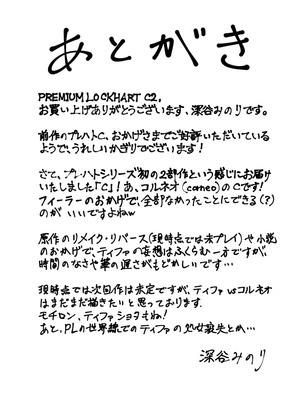 あとがき
PREMIUM LOCKHART C2,
お買い上げありがとうございます、深谷みのりです。
前作のプレハトC、おかげさまでご好評いただいている
ようで、うれしいかぎりでございます！
さて、プレハトシリーズ初の2部作という感じにお届け
いたしました「C」！あ、コルネオ(corneo)のCです！
フィーラーのおかげで、全部なかったことにできる(？)
のが いいですよねw
原作のリメイク・リバース(現時点では未プレイ)や小説
のおかげで、ティファの妄想はふくらむ一方ですが、
時間のなさや筆の遅さがもどかしいです…
現時点では次回作は未定ですが、ティファvsコルネオ
はまだまだ描きたいと思っております.
モチロン、ティファショタもね！
あと、PLの世界線でのティファの処女喪失とか…
深谷みのり